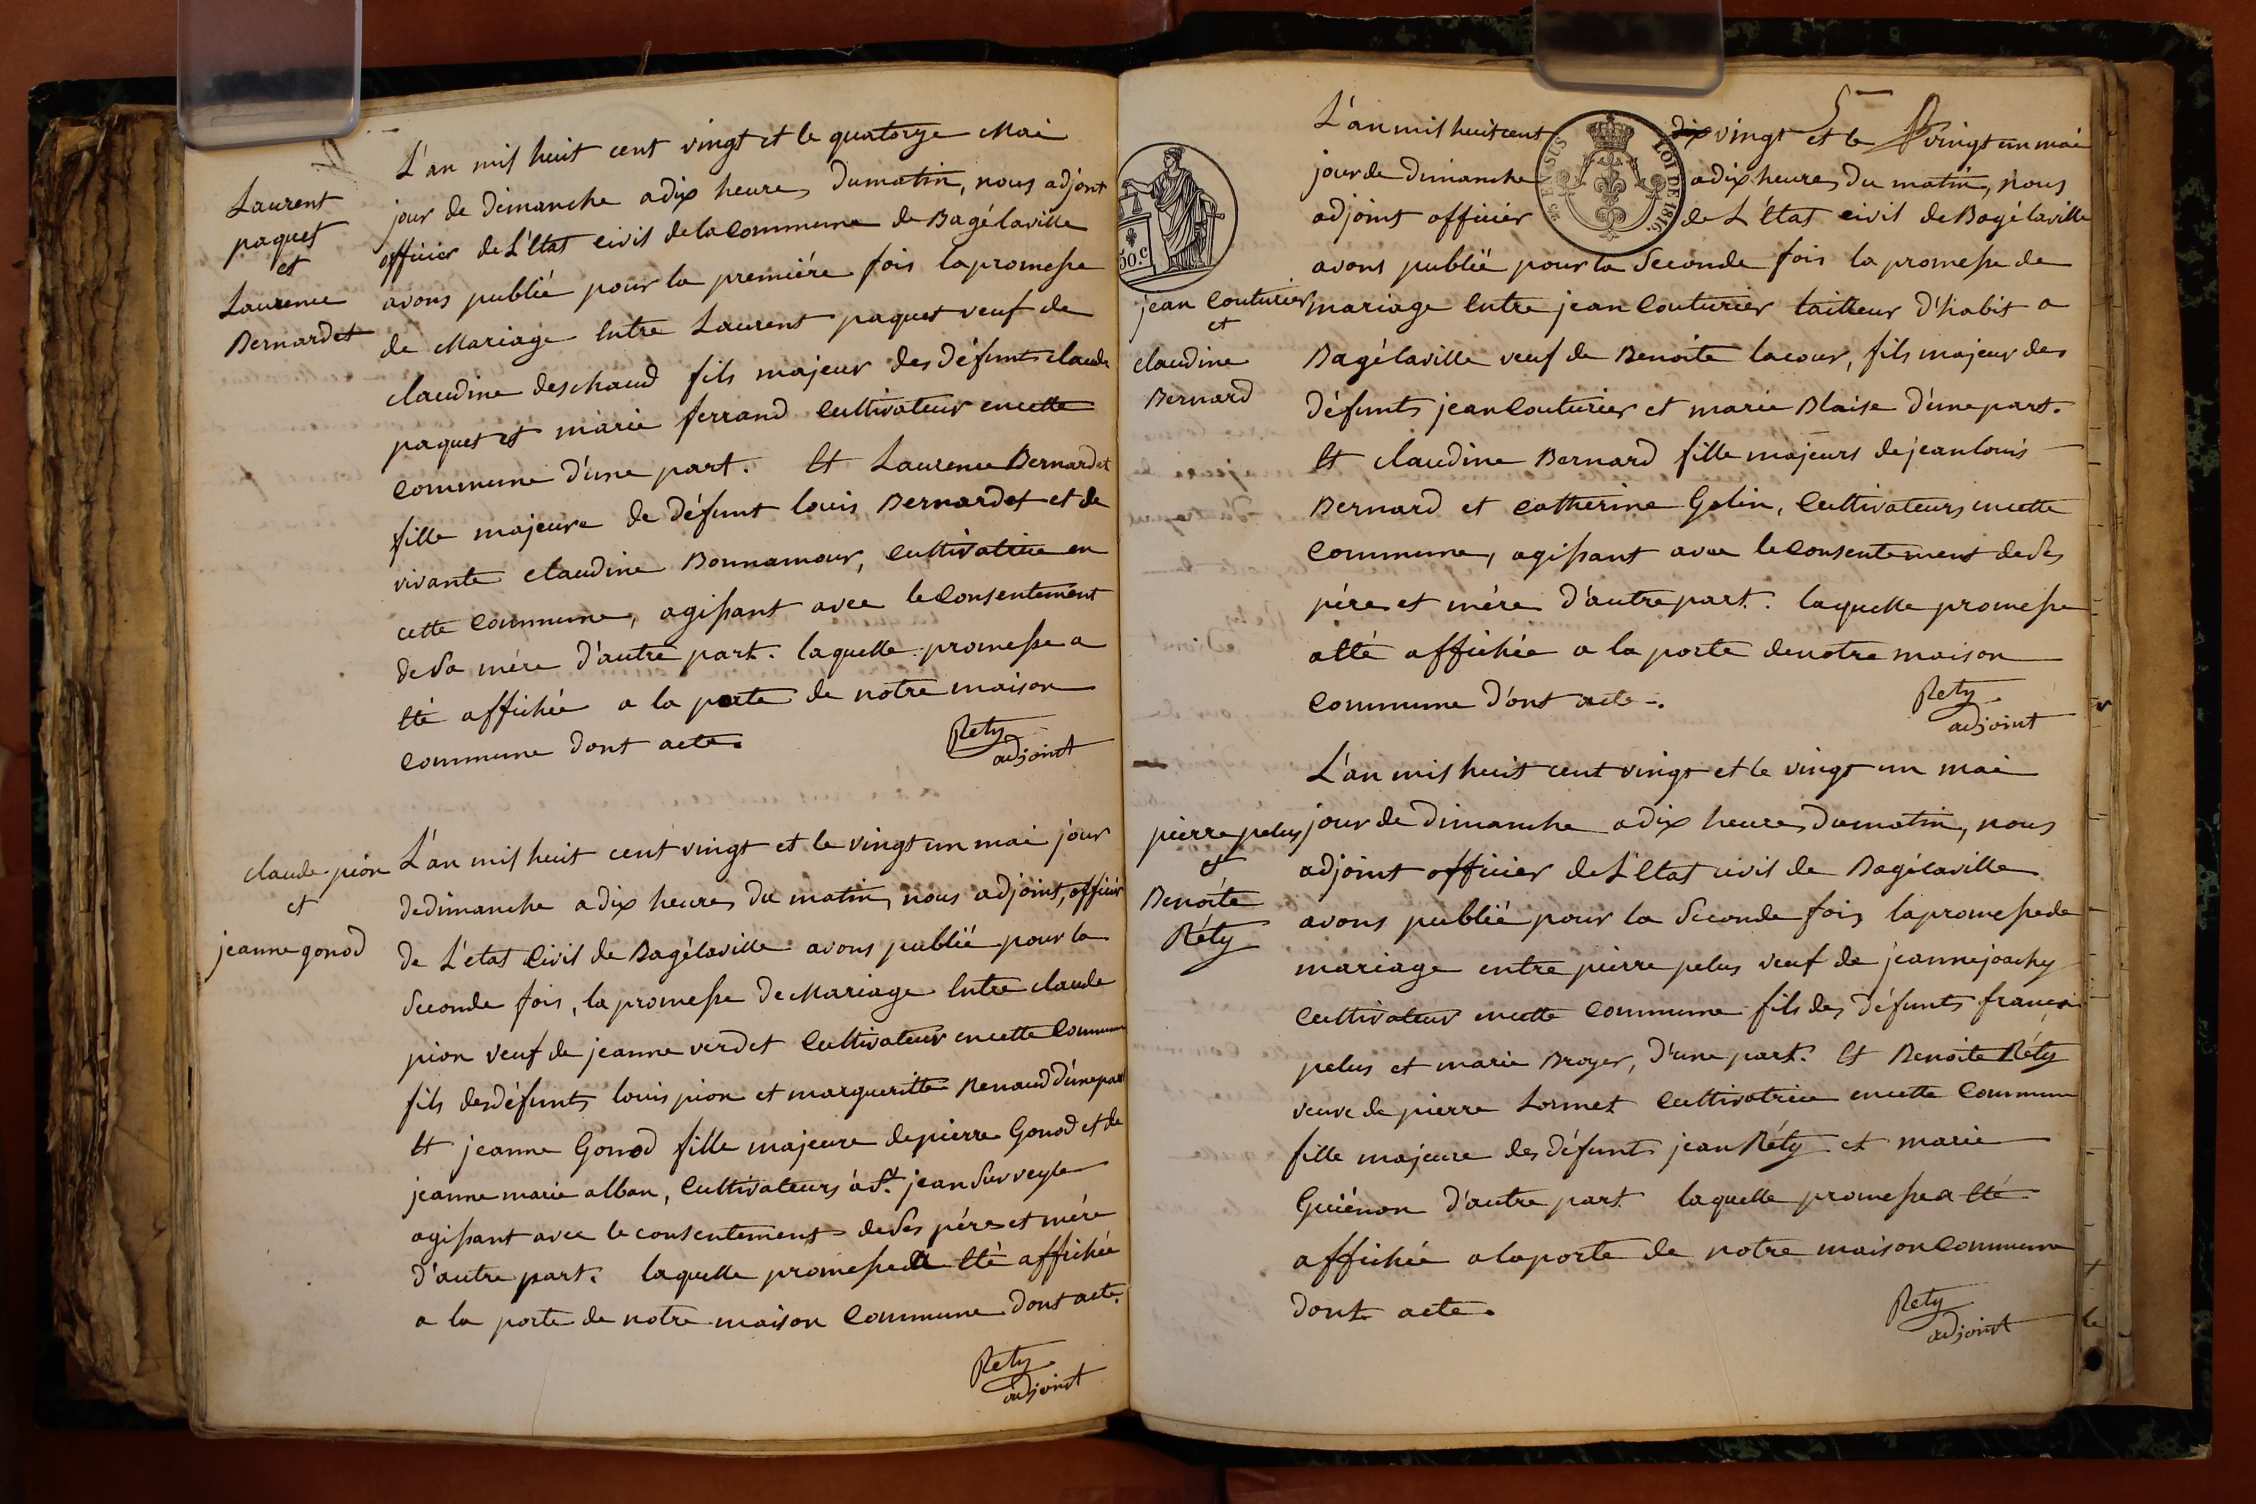 Laurent
paquet
et
Laurence
Bernardet
L'an mil huit cent vingt et le quatorze Mai
jour de dimanche a dix heures du matin, nous adjoint
officier de L'Etat Civil de la Commune de Bagélaville
avons publié pour la première fois la promesse
de Mariage Entre Laurent paquet veuf de
claudine deschaud fils majeur des défunts claude
paquet et marie ferrand Cultivateur en cette
Commune d'une part. Et Laurence Bernardet
fille majeure de défunt louis Bernardet et de
vivante claudine Bonnamour, Cultivatrice en
cette Commune, agissant avec le Consentement
de Sa mère d'autre part. laquelle promesse a
Eté affichée a la porte de notre maison
Commune dont acte.
Rety
adjoint
claude pion
et
jeanne gonod
L'an mil huit cent vingt et le vingt un mai jour
de dimanche a dix heures du matin, nous adjoint, officier
de L'état Civil de Bagélaville avons publié pour la
Seconde fois, la promesse de Mariage Entre claude
pion veuf de jeanne verdet Cultivateur en cette Commune
fils des défunts louis pion et margueritte Renaud d'une part
Et jeanne Gonod fille majeure de pierre Gonod et de
jeanne marie alban, Cultivateurs à St. jean Sur veyle
agissant avec le consentement de Ses père et mère
d'autre part. laquelle promesse a Eté affichée
a la porte de notre maison Commune dont acte.
Rety
adjoint
5
50 c
25 EN SUS
LOI DE 1816.
L'an mil huit cent dix vingt et le vingt un mai
jour de dimanche a dix heures du matin, nous
adjoint officier de L'état civil de Bagélaville
avons publié pour la Seconde fois la promesse de
jean Couturier
et
claudine
Bernard
mariage Entre jean Couturier tailleur d'habit a
Bagélaville veuf de Benoite lacour, fils majeur des
défunts jean Couturier et marie Blaise d'une part.
Et claudine Bernard fille majeurs de jean louis
Bernard et catherine Gelin, Cultivateurs en cette
Commune, agissant avec le Consentement de Ses
père et mère d'autre part. laquelle promesse
a Eté affichée a la porte de notre maison
Commune d'ont acte.
Rety
adjoint
L'an mil huit cent vingt et le vingt un mai
pierre pelus
et
Benoite
Réty
jour de dimanche a dix heures du matin, nous
adjoint officier de L'Etat civil de Bagélaville
avons publié pour la Seconde fois la promesse de
mariage entre pierre pelus veuf de jeanne joachy
Cultivateur en cette Commune fils des défunts françois
pelus et marie Broyer, d'une part. Et Benoite Réty
veuve de pierre Lormet Cultivatrice en cette Commune
fille majeure des défunts jean Réty et marie
Guiénon d'autre part laquelle promesse a Eté
affichée a la porte de notre maison Commune
dont acte.
Rety
adjoint